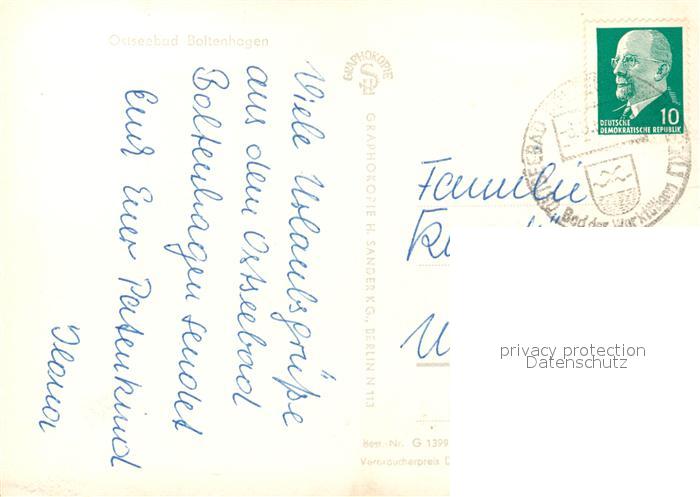 Ostseebad Boltenhagen
Viele Urlaubsgrüße
aus dem Ostseebad
Boltenhagen sendet
Euer Patenkind
Ilona
GRAPHOKOPIE
GRAPHOKOPIE H. SANDER KG., BERLIN N 113
10
DEUTSCHE
DEMOKRATISCHE REPUBLIK
Bad der Werktätigen
Familie
Best.-Nr. G 1399
Verbraucherpreis
privacy protection
Datenschutz